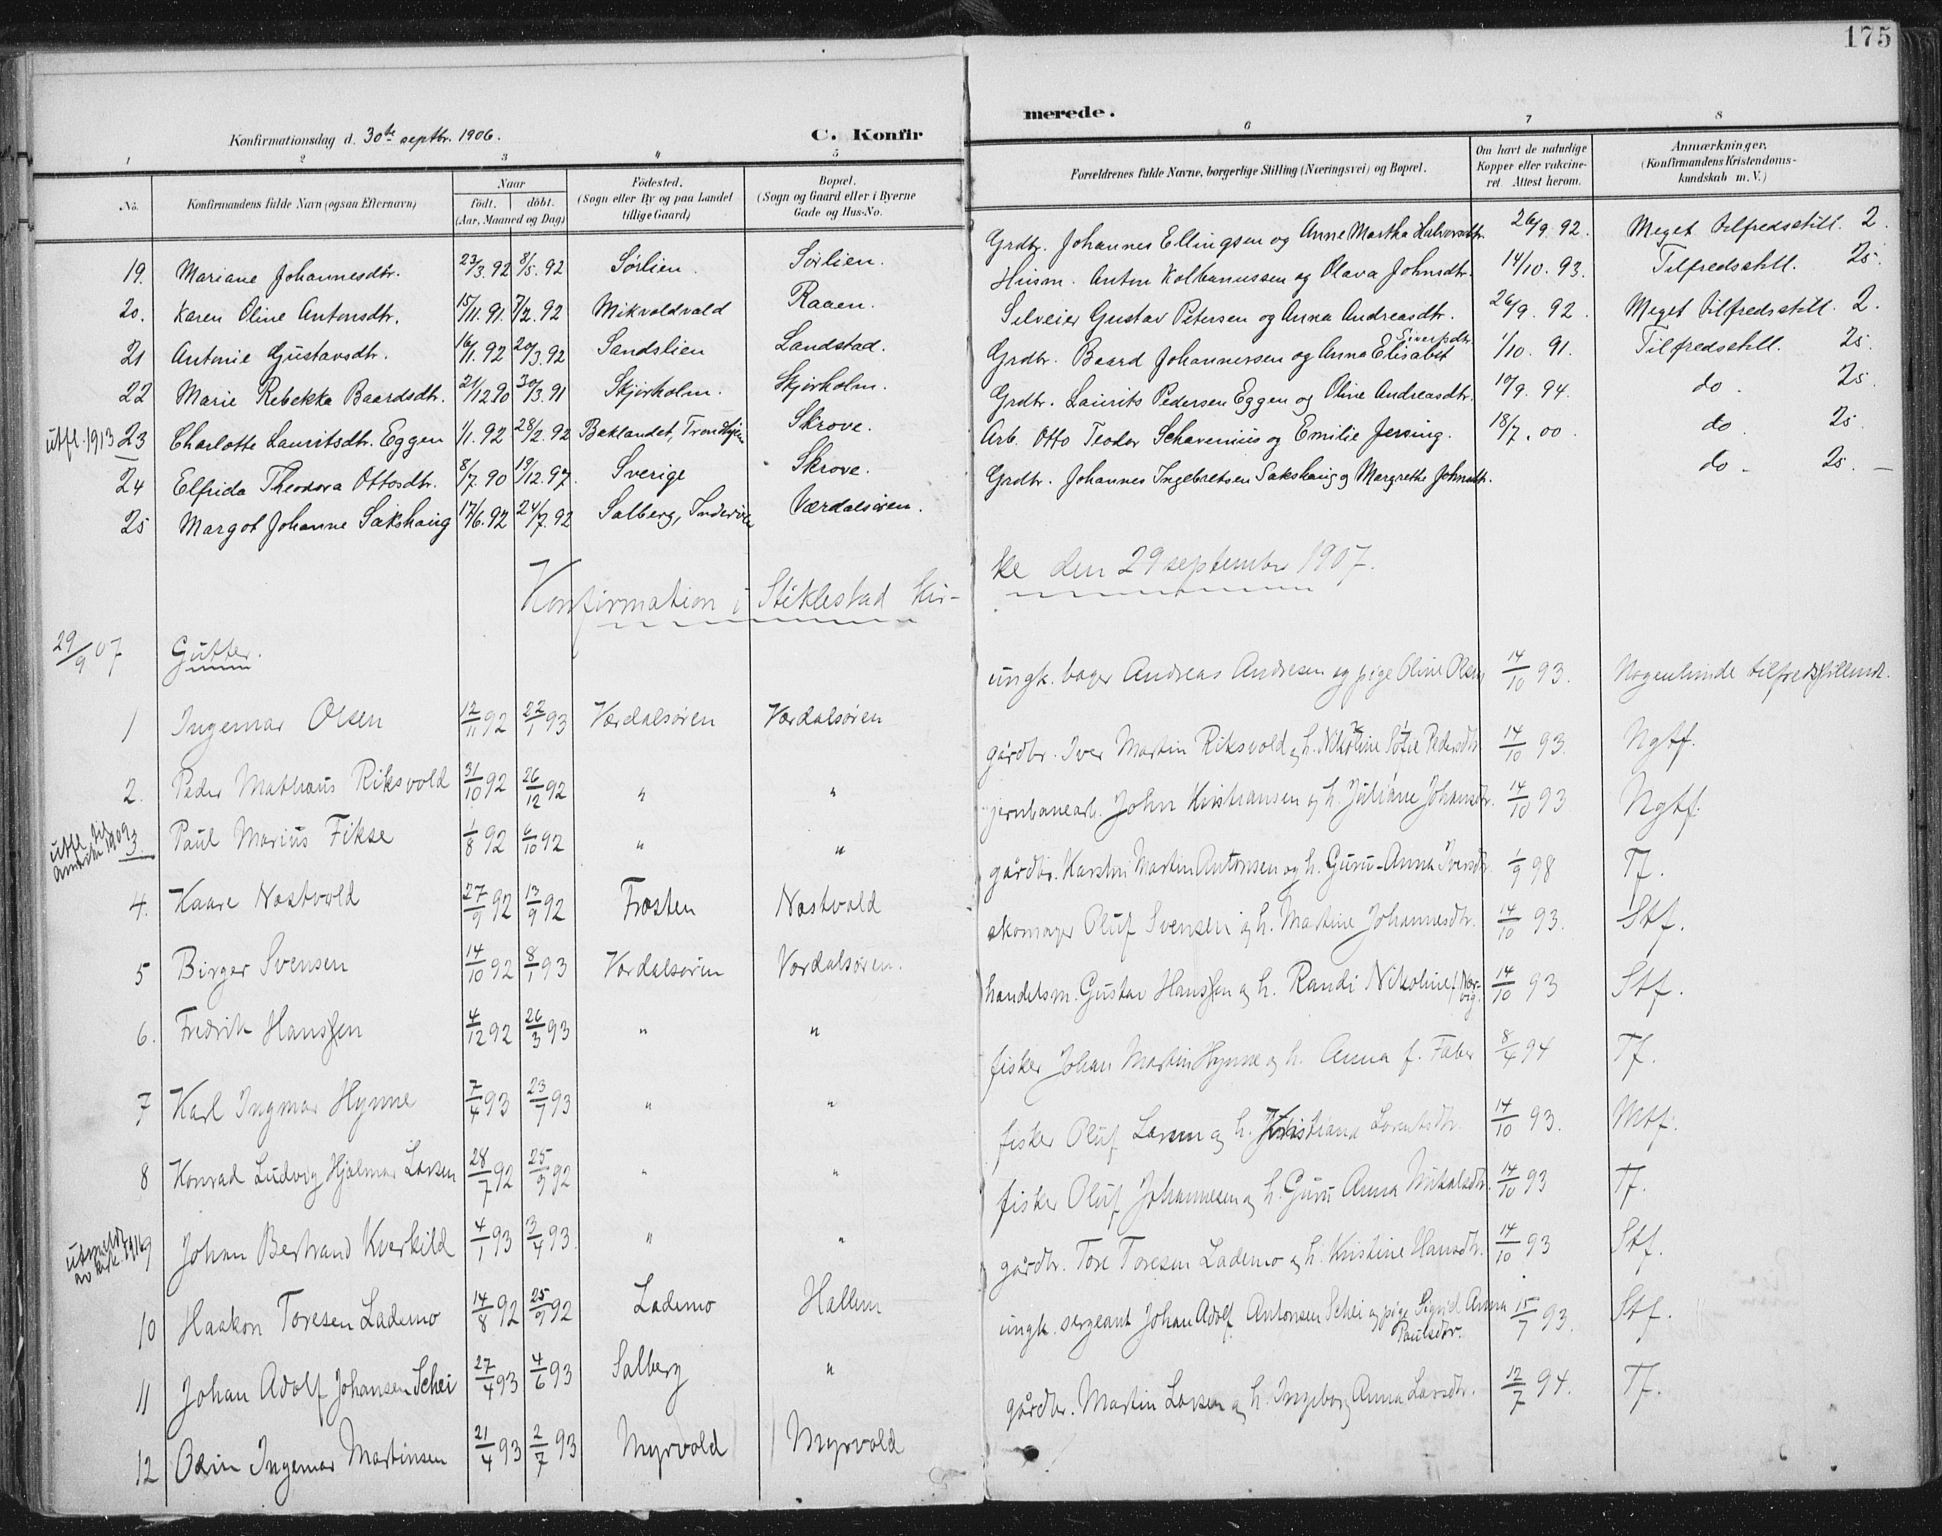 175
Konfirmationsdag d. 30te septbr. 1906.
C. Konfirmerede.
1 2 3 4 5 6 7 8
No. Konfirmandens fulde Navn (ogsaa Efternavn)
Naar født. døbt. (Aar, Maaned og Dag)
Fødested. (Sogn eller By og paa Landet tillige Gaard)
Bopæl. (Sogn og Gaard eller i Byerne Gade og Hus-No.
Forældrenes fulde Navne, borgerlige Stilling (Næringsvei) og Bopæl.
Om havt de naturlige Kopper eller vakcineret Attest herom.
Anmærkninger, (Konfirmandens Kristendomskundskab m. V.)
19. Mariane Johannesdtr. 23/3.92 8/5.92 Sörlien. Sörlien. Grdbr. Johannes Ellingsen og Anne Martha Halvorsdtr. 26/9.92. Meget tilfredsstill. 2.
20. Karen Oline Antonsdtr. 15/11.91. 7/2.92 Mikvoldvald Raaen. Husm. Anton Kolbanussen og Olava Johnsdtr. 14/10.93. Tilfredsstill. 25.
21 Antonie Gustavsdtr. 16/1.92 20/3.92 Sandslien Landstad. Selveier Gustav Petersen og Anna Andreasdtr. 26/9.92. Meget tilfredsstill. 2.
22 Marie Rebekka Baardsdtr. 21/12 90 30/3.91 Skjörholm. Skjörholm. Grdbr. Baard Johannersen og Anna Elisabet Sivertsdtr. 1/10.91. Tilfredsstill. 25.
utfl. 1913 23 Charlotte Lauritsdtr. Eggen 1/1.92 28/2.92 Baklandet, Trondhjem Skrove. Grdbr. Laurits Pedersen Eggen og Oline Andreasdtr. 10/9.94. do. 25.
24 Elfrida Theodora Ottosdtr. 8/7.90 19/12.97. Sverige Skrove. Arb. Otto Teodor Schavenius og Emilie Jersing. 18/7.00. do. 25.
25 Margot Johanne Sakshaug 17/6.92 24/7.92 Salberg, Inderöen Værdalsören. Grdbr. Johannes Ingebretsen Sakshaug og Margrethe Johnsdtr. do - 25. -
Konfirmation i Stiklestad Kirke den 29 september 1907.
29/9 07 Gutter.
1 Ingemar Olsen 12/11 92 22/1 93 Værdalsøren Værdalsøren ungk. bager Andreas Andresen og pige Oline Olsen 14/10 93. Nogenlunde tilfredsstillende.
2. Peder Mathæus Riksvold 31/10 92 26/12 92 " " gårdbr. Iver Martin Riksvold og h. Nikoline Sofie Pedersdtr 14/10 93. Ngtf.
utfl. til Amerika 1909 3. Paul Marius Fikse 1/8 92 6/10 92 " " jernbanearb. John Kristiansen og h. Juliane Johansdtr. 14/10 93 Ngtf.
4. Kaare Næstvold 27/9 92 13/9 92 Frosten Næstvold gårdbr. Karsten Martin Antonsen og h. Guru-Anna Iversdtr. 1/9 98 Tf.
5 Birger Svensen 14/10 92 8/1 93 Værdalsøren Værdalsøren. skomager Oluf Svensen og h. Martine Johannesdtr. 14/10 93. Stf.
6. Fredrik Hanssen 4/12 92 26/3 93 " " handelsm. Gustav Hanssen og h. Randi Nikoline 14/10 93 Stf.
7 Karl Ingmar Hynne 7/4 93 23/7 93 " " fisker Johan Martin Hynne og h. Anna f. Faber 8/4 94 Tf.
8 Konrad Ludvig Hjalmar Larsen 28/7 92 25/9 92 " " fisker Oluf Larsen og h. Kristiana Lorentsdtr. 14/10 93. Mtf.
utmeldt av kirk. 1916 9 Johan Bertrand Kverkild 4/1 93 3/4 93. " " fisker Oluf Johannesen og h. Guru Anna Nikolsdtr. 14/10 93 Tf.
10 Haakon Toresen Lademo 14/8 92 25/9 92 Lademo Hallem gårdbr. Tore Toresen Lademo og h. Kristine Hansdtr. 14/10 93 Stf.
11 Johan Adolf Johansen Schei 27/4 93 4/6 93 Salberg " ungk. sergeant Johan Adolf Antonsen Schei og pige Sigrid Anna Paulsdtr. 15/7 93. Stf.
12 Odin Ingemar Martinsen 21/4 93 2/7 93 Myrvold Myrvold gårdbr. Martin Larsen og h. Ingeborg Anna Larsdtr. 12/7 94. Tf.